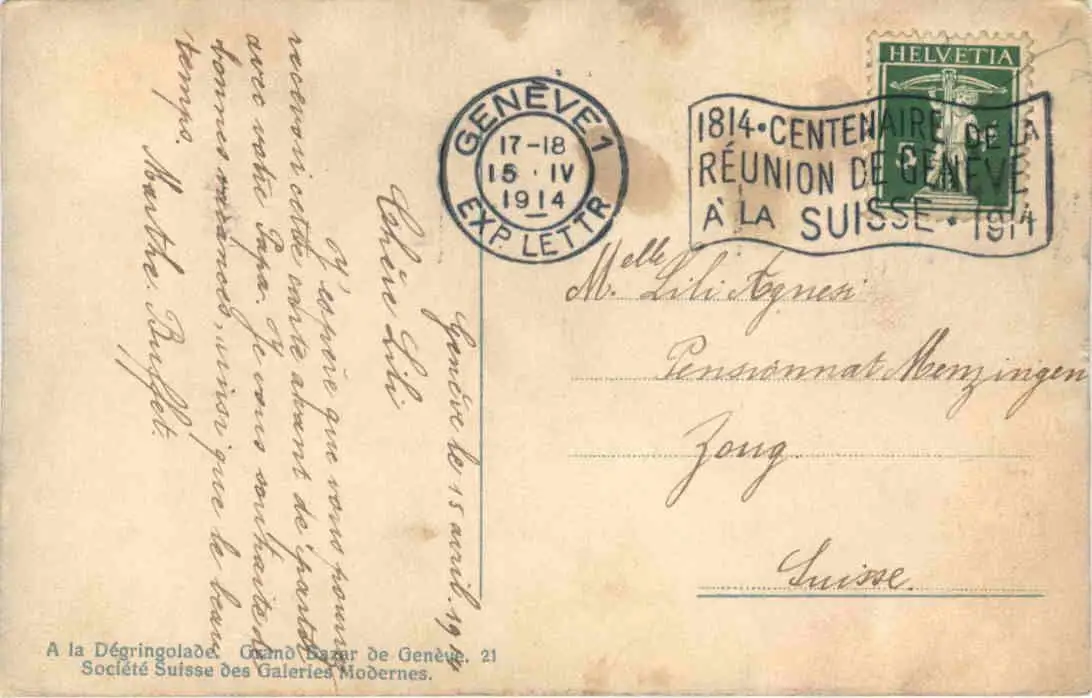 GENÈVE 1
17-18
15 · IV
1914
EXP. LETTR.
HELVETIA
1814 • CENTENAIRE DE LA
RÉUNION DE GENÈVE
À LA SUISSE • 1914
Genève le 15 avril. 1914
Chère Lili
J'espère que vous pourrez
recevoir cette carte avant de partir
avec votre Papa. Je vous souhaite de
bonnes vacances, ainsi que le beau
temps.
Marthe. Buffet.
Melle Lili Agnesi
Pensionnat Menzingen
Zoug.
Suisse.
A la Dégringolade. Grand Bazar de Genève. 21
Société Suisse des Galeries Modernes.